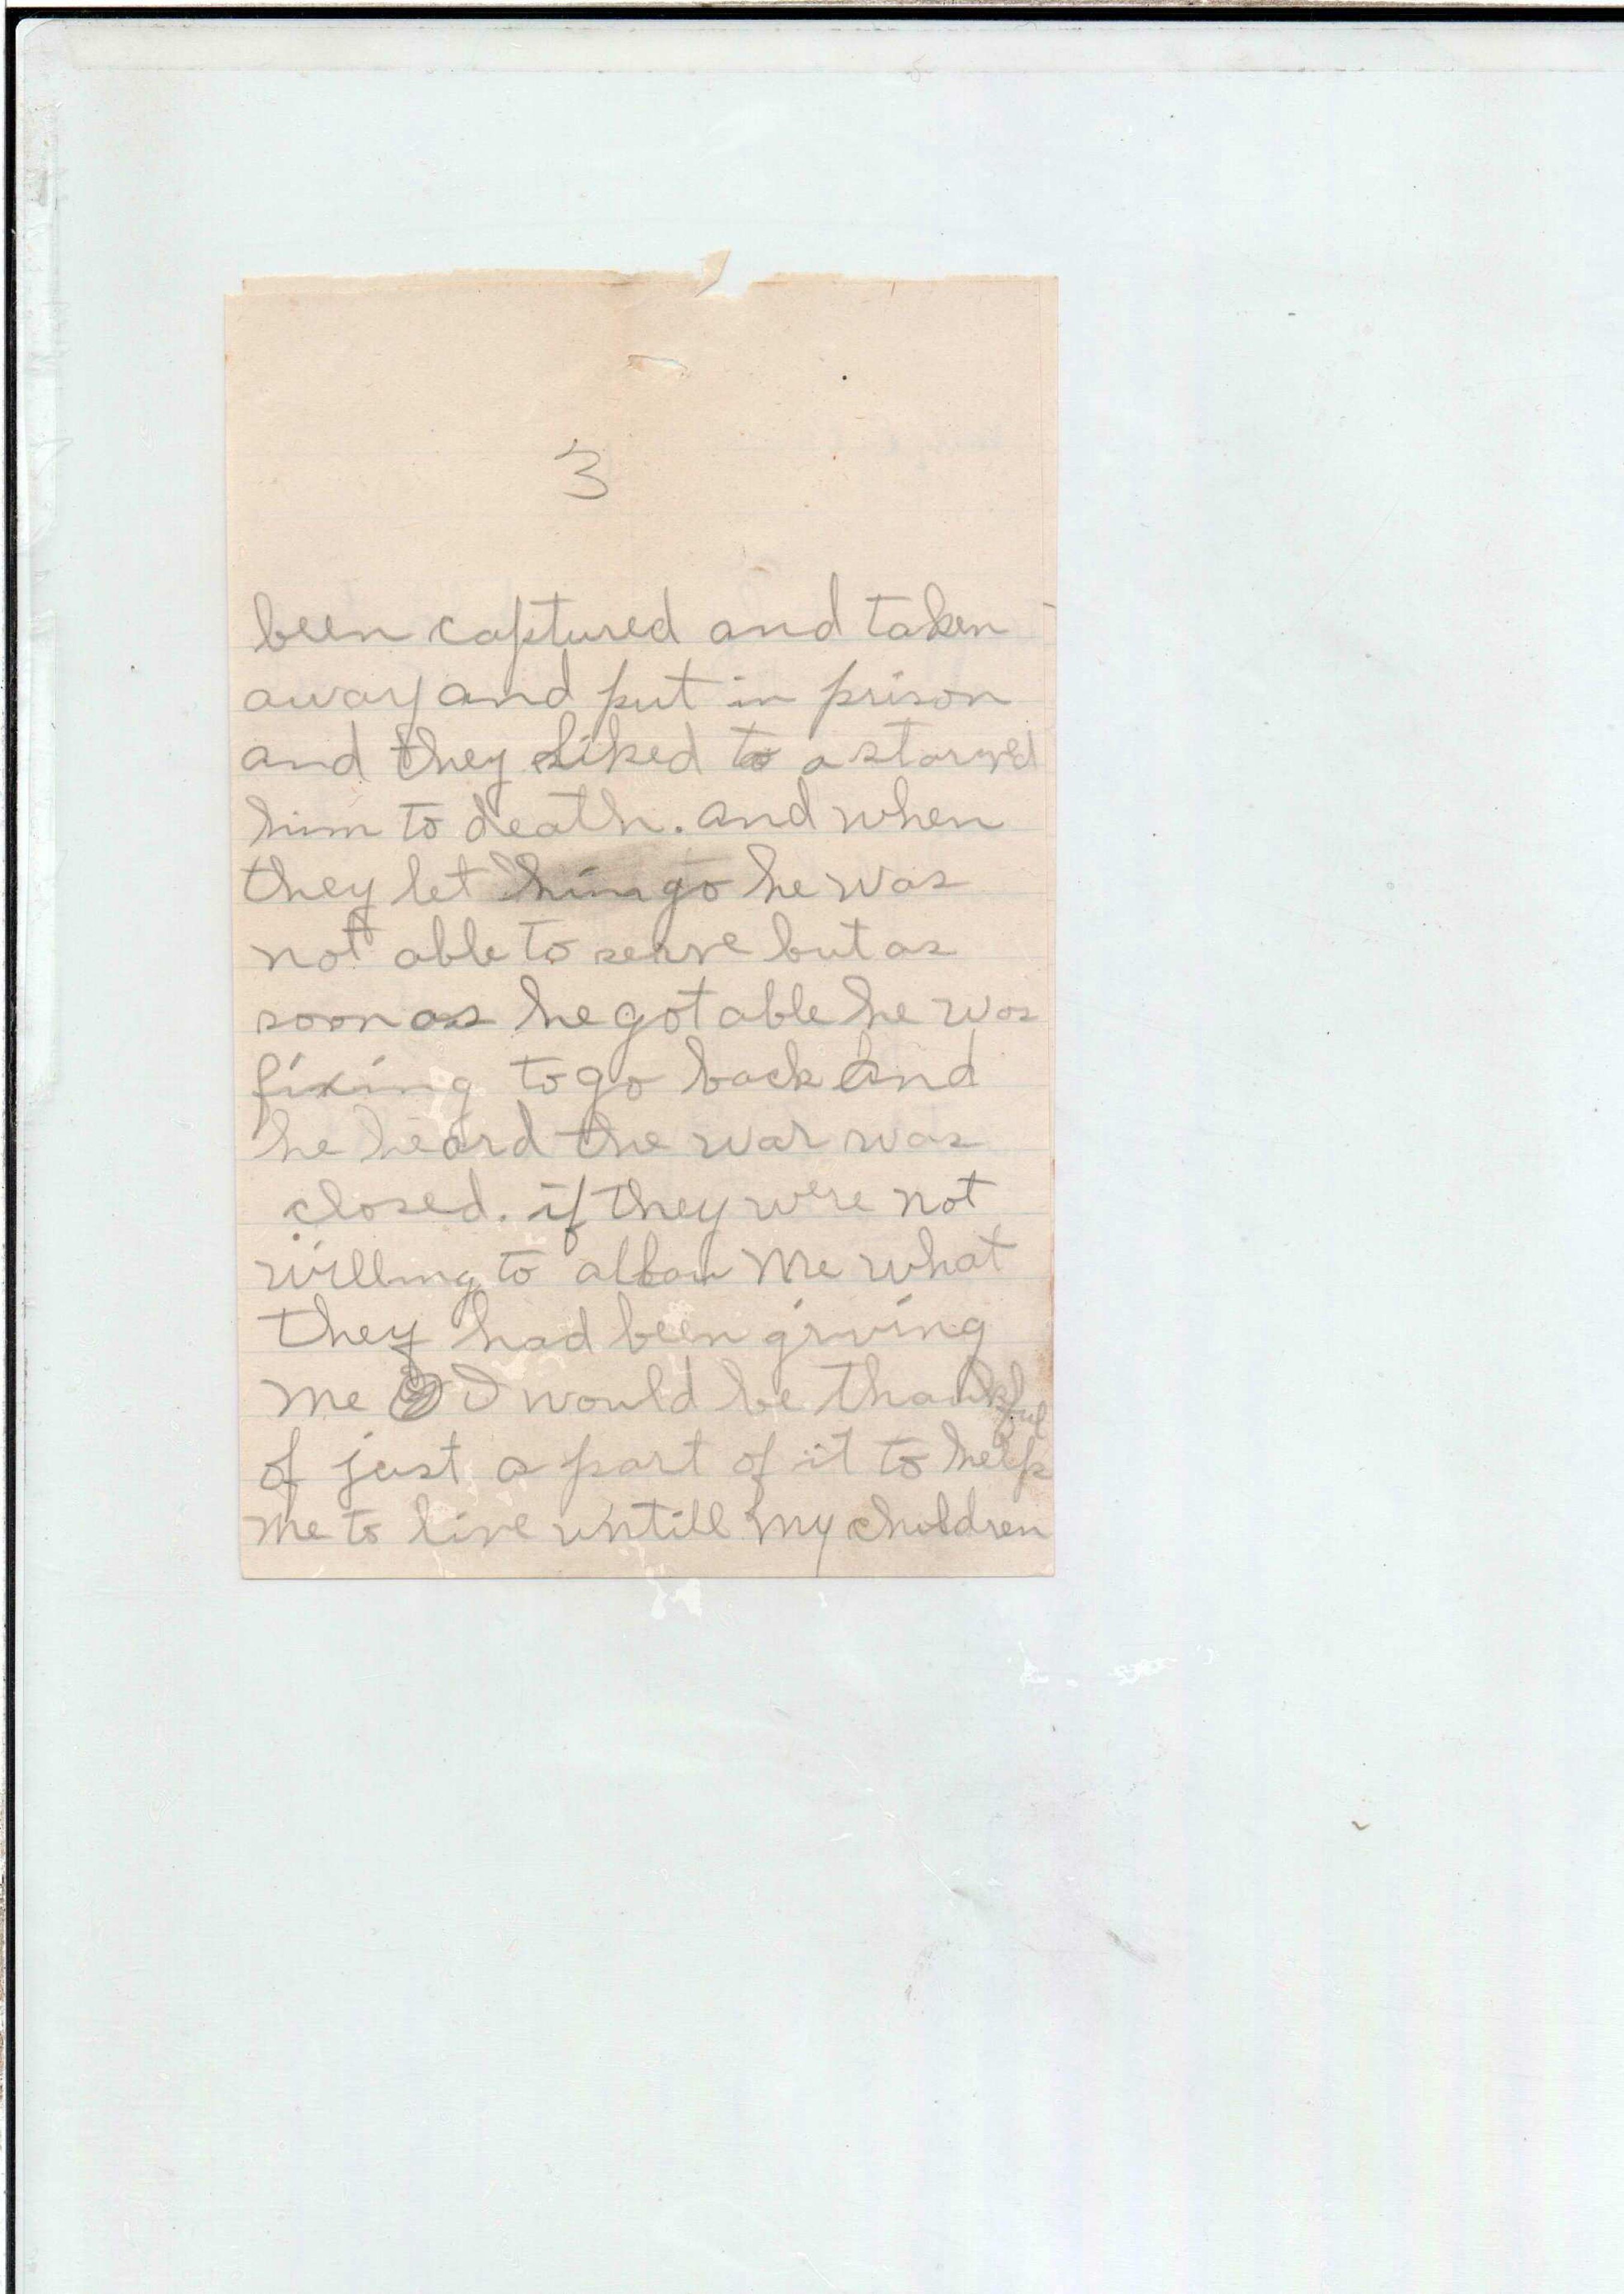 3
been captured and taken
away and put in prison
and they liked to a starved
him to death. and when
they let him go he was
not able to serve but as
soon as he got able he was
fixing to go back and
he heard the war was
closed. if they were not
willing to allow me what
they had been giving
me I would be thankful
of just a part of it to help
me to live untill my children